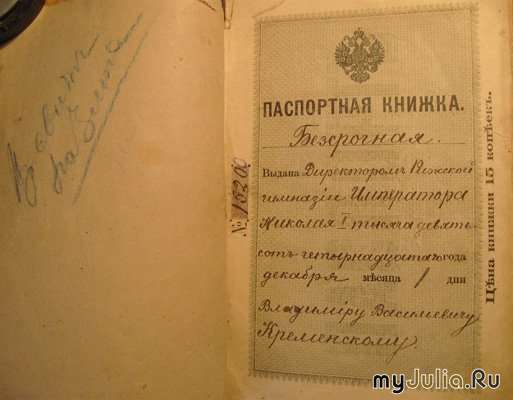 ПАСПОРТНАЯ КНИЖКА.
Безсрочная.
Выдана Директоромъ Рижской
гимназіи Императора
Николая I тысяча девять
сотъ четырнадцатаго года
декабря мѣсяца 1 дня
Владиміру Васильевичу
Кременскому.
№ 15200
Цѣна книжки 15 копѣекъ.
myJulia.Ru